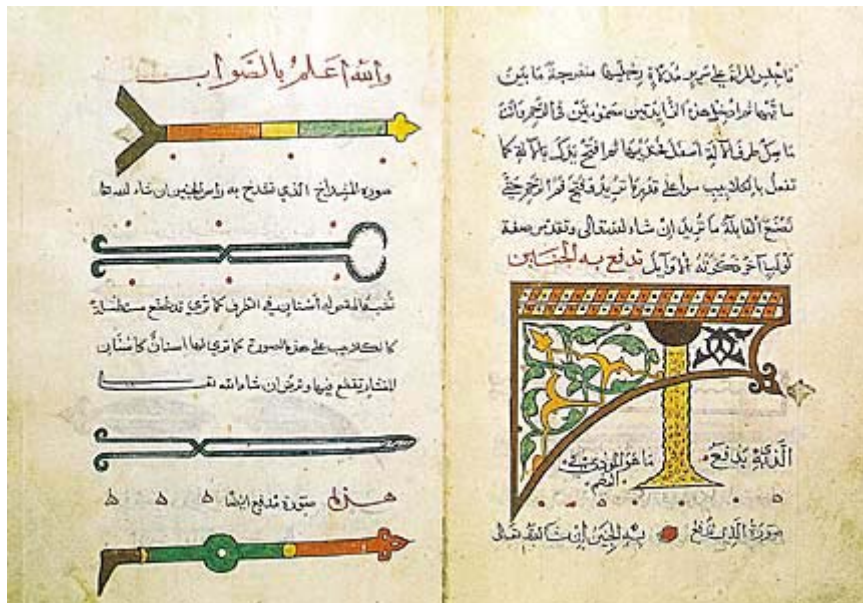 المراة على سرير مدلاة رجليها منفرجة ما بين
ساقيها ثم ادخل هذه الزايدتين في الرحم وانت
ماسك طرف الآلة اسفل ثم افتح يدك بالآلة كما
تفعل بالكلاليب سوا على قدر ما تريد فتح فم الرحم حتى
تصنع القابلة ما تريد ان شاء الله تعالى صفة
لولب اخر ذكرته الاوايل تدفع به
الذي يدفع ما هو
صورة الذي يدفع به الجنين ان شا الله تعالى
والله اعلم بالصواب
صورة المشداخ الذي تشدخ به راس الجنين ان شاء الله
المقص له اسنان في الطرف كما ترى قد مستطيلة
كالكلاليب على هذه الصورة كما ترى لها اسنان كاسنان
المنشار تقطع فيها وترض ان شاء الله
هذه صورة مدفع ايضا